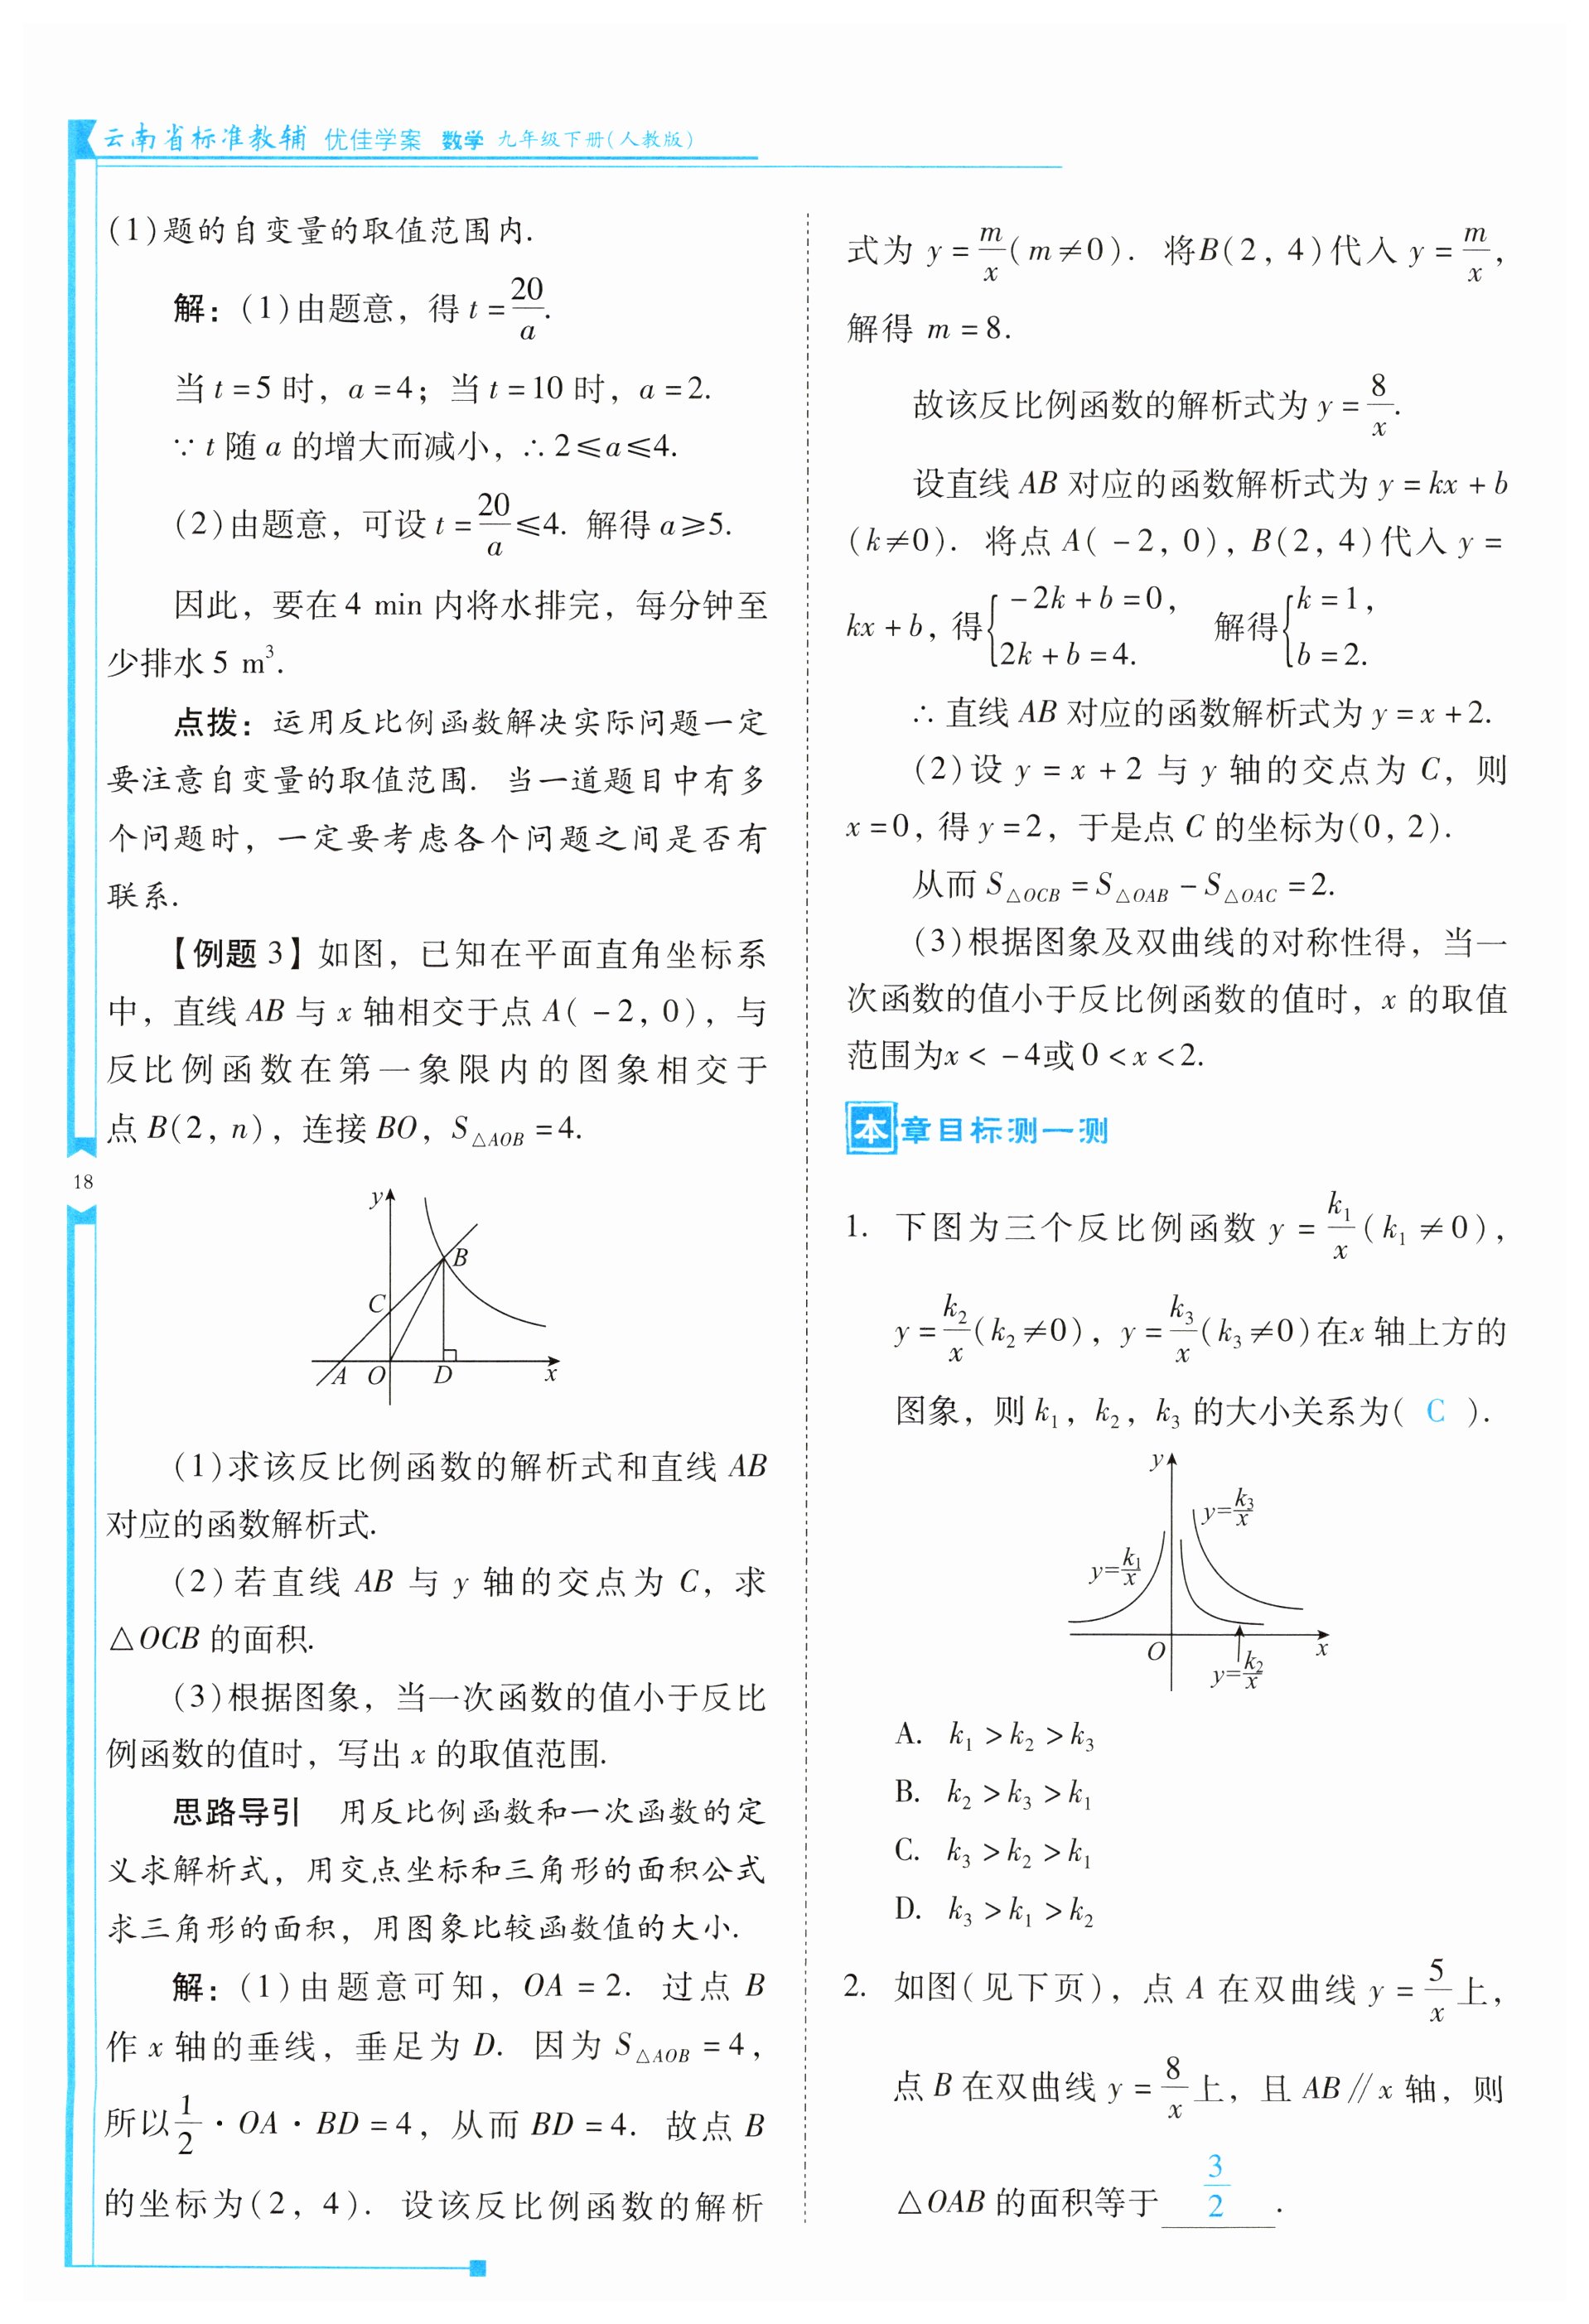 云南省标准教辅 优佳学案 数学 九年级下册(人教版)
(1)题的自变量的取值范围内.
解：(1)由题意，得 t = 20/a.
当 t = 5 时，a = 4；当 t = 10 时，a = 2.
∵ t 随 a 的增大而减小，∴ 2 ≤ a ≤ 4.
(2)由题意，可设 t = 20/a ≤ 4. 解得 a ≥ 5.
因此，要在 4 min 内将水排完，每分钟至
少排水 5 m³.
点拨：运用反比例函数解决实际问题一定
要注意自变量的取值范围. 当一道题目中有多
个问题时，一定要考虑各个问题之间是否有
联系.
【例题 3】如图，已知在平面直角坐标系
中，直线 AB 与 x 轴相交于点 A( -2, 0)，与
反比例函数在第一象限内的图象相交于
点 B(2, n)，连接 BO，S△AOB = 4.
y
B
C
A O D x
(1)求该反比例函数的解析式和直线 AB
对应的函数解析式.
(2)若直线 AB 与 y 轴的交点为 C，求
△OCB 的面积.
(3)根据图象，当一次函数的值小于反比
例函数的值时，写出 x 的取值范围.
思路导引 用反比例函数和一次函数的定
义求解析式，用交点坐标和三角形的面积公式
求三角形的面积，用图象比较函数值的大小.
解：(1)由题意可知，OA = 2. 过点 B
作 x 轴的垂线，垂足为 D. 因为 S△AOB = 4，
所以 1/2 · OA · BD = 4，从而 BD = 4. 故点 B
的坐标为(2, 4). 设该反比例函数的解析
18
式为 y = m/x ( m ≠ 0). 将B(2, 4)代入 y = m/x，
解得 m = 8.
故该反比例函数的解析式为 y = 8/x.
设直线 AB 对应的函数解析式为 y = kx + b
(k≠0). 将点 A( -2, 0)，B(2, 4)代入 y =
kx + b，得{ -2k + b = 0, 2k + b = 4. 解得{ k = 1, b = 2.
∴ 直线 AB 对应的函数解析式为 y = x + 2.
(2)设 y = x + 2 与 y 轴的交点为 C，则
x = 0，得 y = 2，于是点 C 的坐标为(0, 2).
从而 S△OCB = S△OAB - S△OAC = 2.
(3)根据图象及双曲线的对称性得，当一
次函数的值小于反比例函数的值时，x 的取值
范围为x < -4或 0 < x < 2.
本章目标测一测
1. 下图为三个反比例函数 y = k₁/x ( k₁ ≠ 0)，
y = k₂/x ( k₂ ≠ 0)，y = k₃/x ( k₃ ≠ 0)在x 轴上方的
图象，则 k₁，k₂，k₃ 的大小关系为( C ).
y
y=k₃/x
y=k₁/x
O x
y=k₂/x
A. k₁ > k₂ > k₃
B. k₂ > k₃ > k₁
C. k₃ > k₂ > k₁
D. k₃ > k₁ > k₂
2. 如图(见下页)，点 A 在双曲线 y = 5/x 上，
点 B 在双曲线 y = 8/x 上，且 AB∥x 轴，则
△OAB 的面积等于 3/2 .